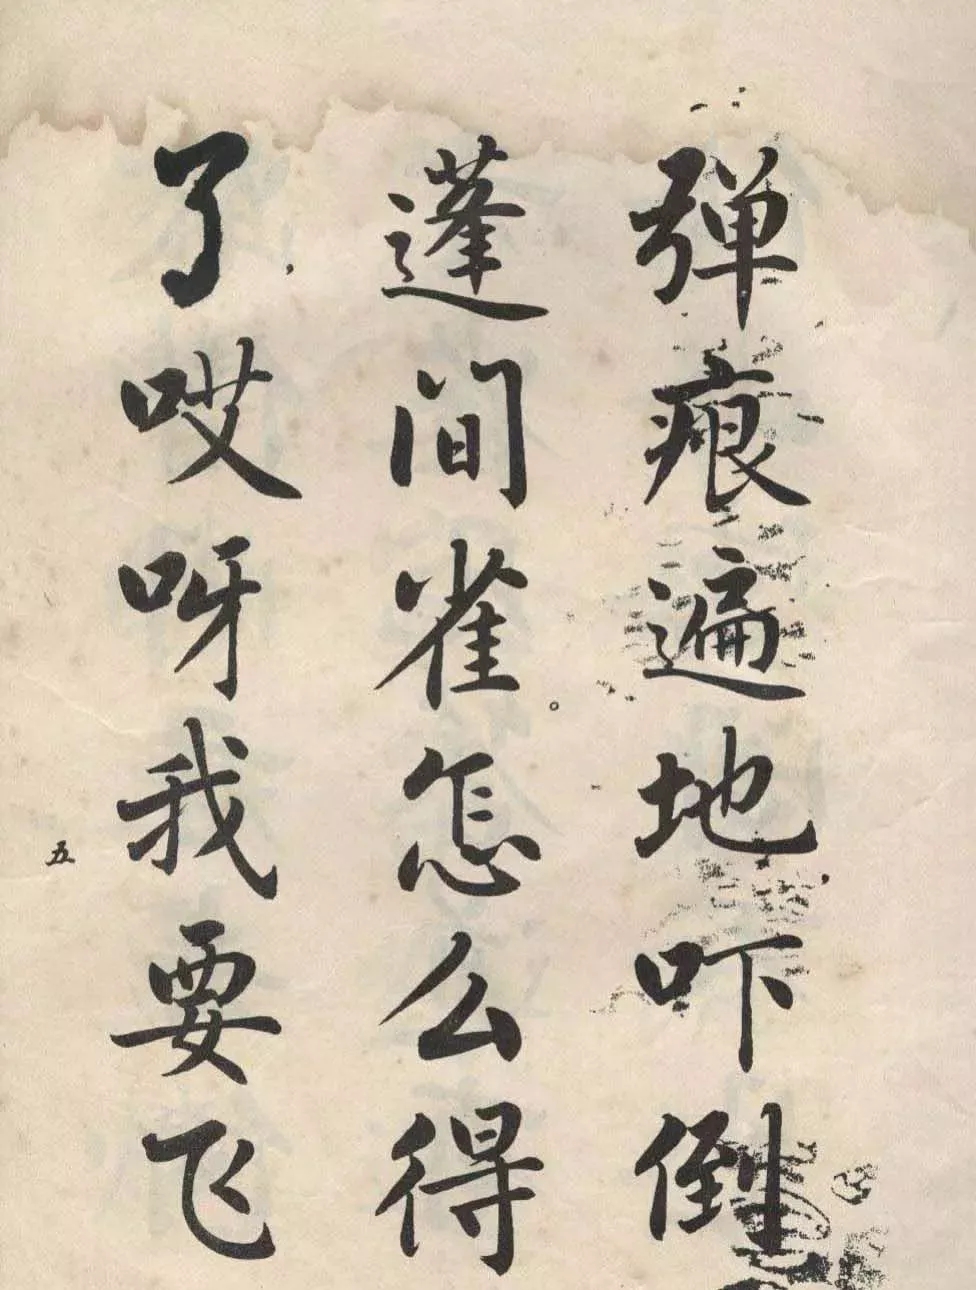 弹痕遍地，吓倒
蓬间雀。怎么得
了，哎呀我要飞
五